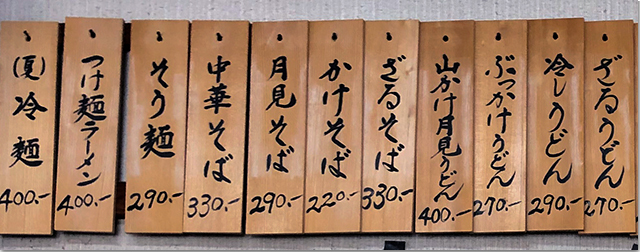 ざるうどん
270.-
冷しうどん
290.-
ぶっかけうどん
270.-
山かけ月見うどん
400.-
ざるそば
330.-
かけそば
220.-
月見そば
290.-
中華そば
330.-
そう麺
290.-
つけ麺ラーメン
400.-
(夏)冷麺
400.-